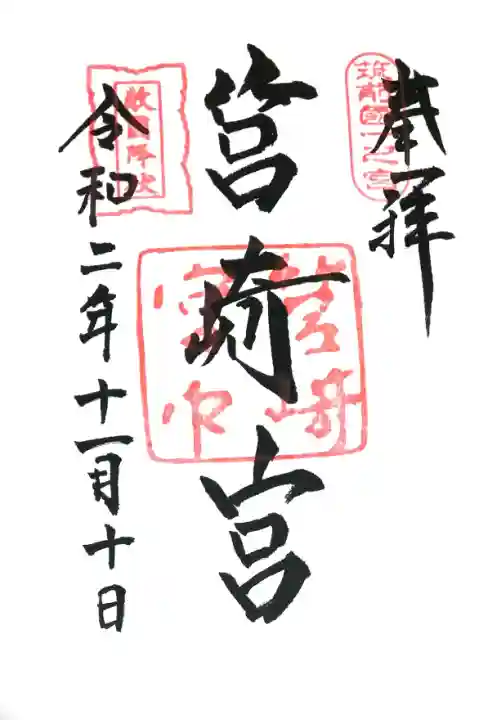 奉拝
筑前國一之宮
筥崎宮
筥崎宮印
令和二年十一月十日
敵國降伏